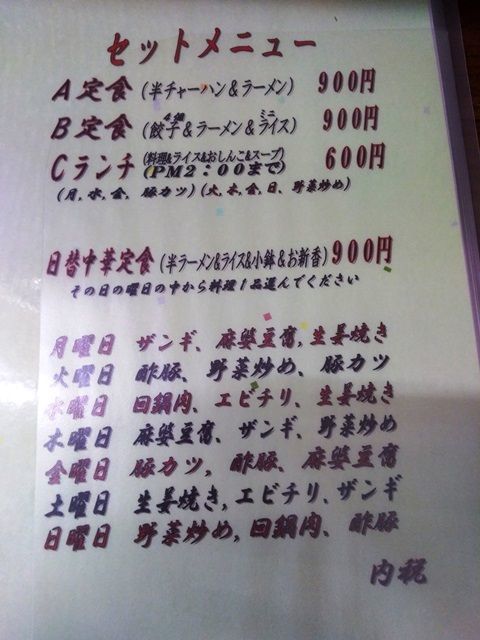 セットメニュー
A定食(半チャーハン&ラーメン) 900円
B定食(餃子4個&ラーメン&ミニライス) 900円
Cランチ(料理&ライス&おしんこ&スープ)(PM2:00まで) 600円
(月,水,金, 豚カツ)(火,木,金,日、野菜炒め)
日替中華定食(半ラーメン&ライス&小鉢&お新香)900円
その日の曜日の中から料理1品選んでください
月曜日 ザンギ、麻婆豆腐,生姜焼き
火曜日 酢豚、野菜炒め、豚カツ
水曜日 回鍋肉、エビチリ、生姜焼き
木曜日 麻婆豆腐、ザンギ、野菜炒め
金曜日 豚カツ,酢豚、麻婆豆腐
土曜日 生姜焼き,エビチリ、ザンギ
日曜日 野菜炒め,回鍋肉、酢豚
内税